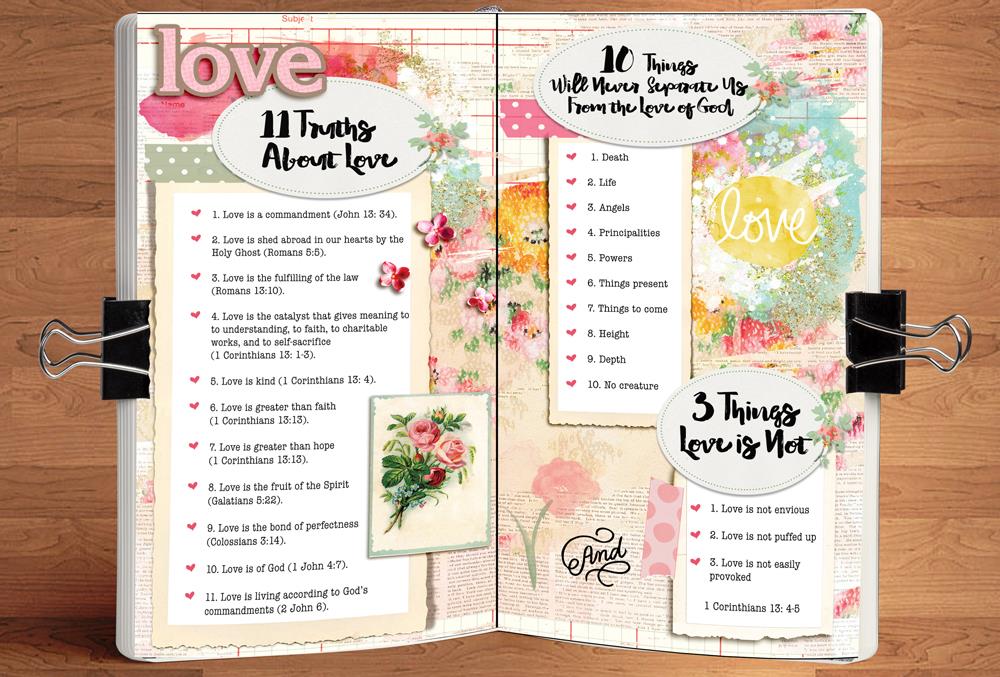 Subject
love
Name
11 Truths
About Love
1. Love is a commandment (John 13: 34).
2. Love is shed abroad in our hearts by the
Holy Ghost (Romans 5:5).
3. Love is the fulfilling of the law
(Romans 13:10).
4. Love is the catalyst that gives meaning to
to understanding, to faith, to charitable
works, and to self-sacrifice
(1 Corinthians 13: 1-3).
5. Love is kind (1 Corinthians 13: 4).
6. Love is greater than faith
(1 Corinthians 13:13).
7. Love is greater than hope
(1 Corinthians 13:13).
8. Love is the fruit of the Spirit
(Galatians 5:22).
9. Love is the bond of perfectness
(Colossians 3:14).
10. Love is of God (1 John 4:7).
11. Love is living according to God's
commandments (2 John 6).
10 Things
Will Never Separate Us
From the Love of God
1. Death
2. Life
3. Angels
4. Principalities
5. Powers
6. Things present
7. Things to come
8. Height
9. Depth
10. No creature
love
And
3 Things
Love is Not
1. Love is not envious
2. Love is not puffed up
3. Love is not easily
provoked
1 Corinthians 13: 4-5